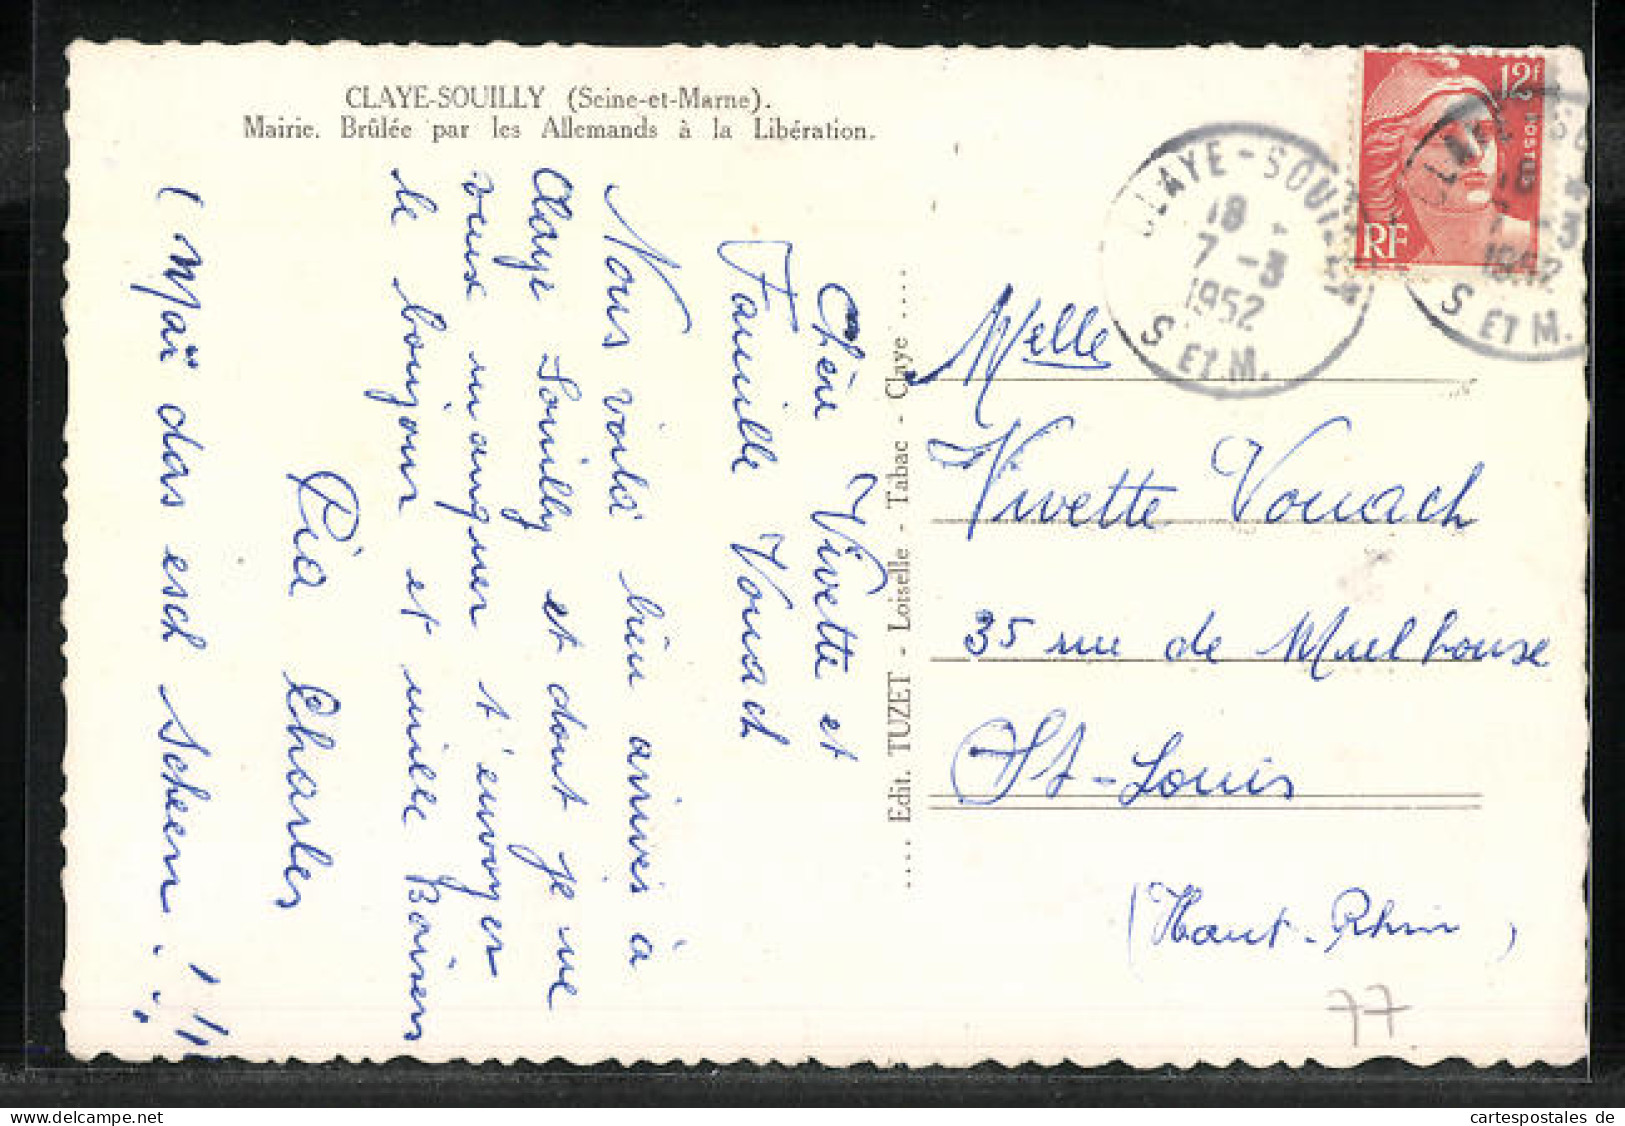 CLAYE-SOUILLY (Seine-et-Marne).
Mairie. Brûlée par les Allemands à la Libération.
Chère Vivette et
Famille Vonach
Nous voilà bien arrivés à
Claye Souilly et dont je ne
veux manquer t'envoyer
le bonjour et mille Baisers
Pia Charles
( Maï das esch Scheen ! !!
.... Edit. TUZET - Loiselle - Tabac - Claye ....
12F
POSTES
RF
CLAYE-SOUILLY
18
7-3
1952
S ET M.
CLAYE-SOU
18
7-3
1952
S ET M.
Melle
Vivette Vonach
35 rue de Mulhouse
St-Louis
(Haut-Rhin)
77
cartespostales de